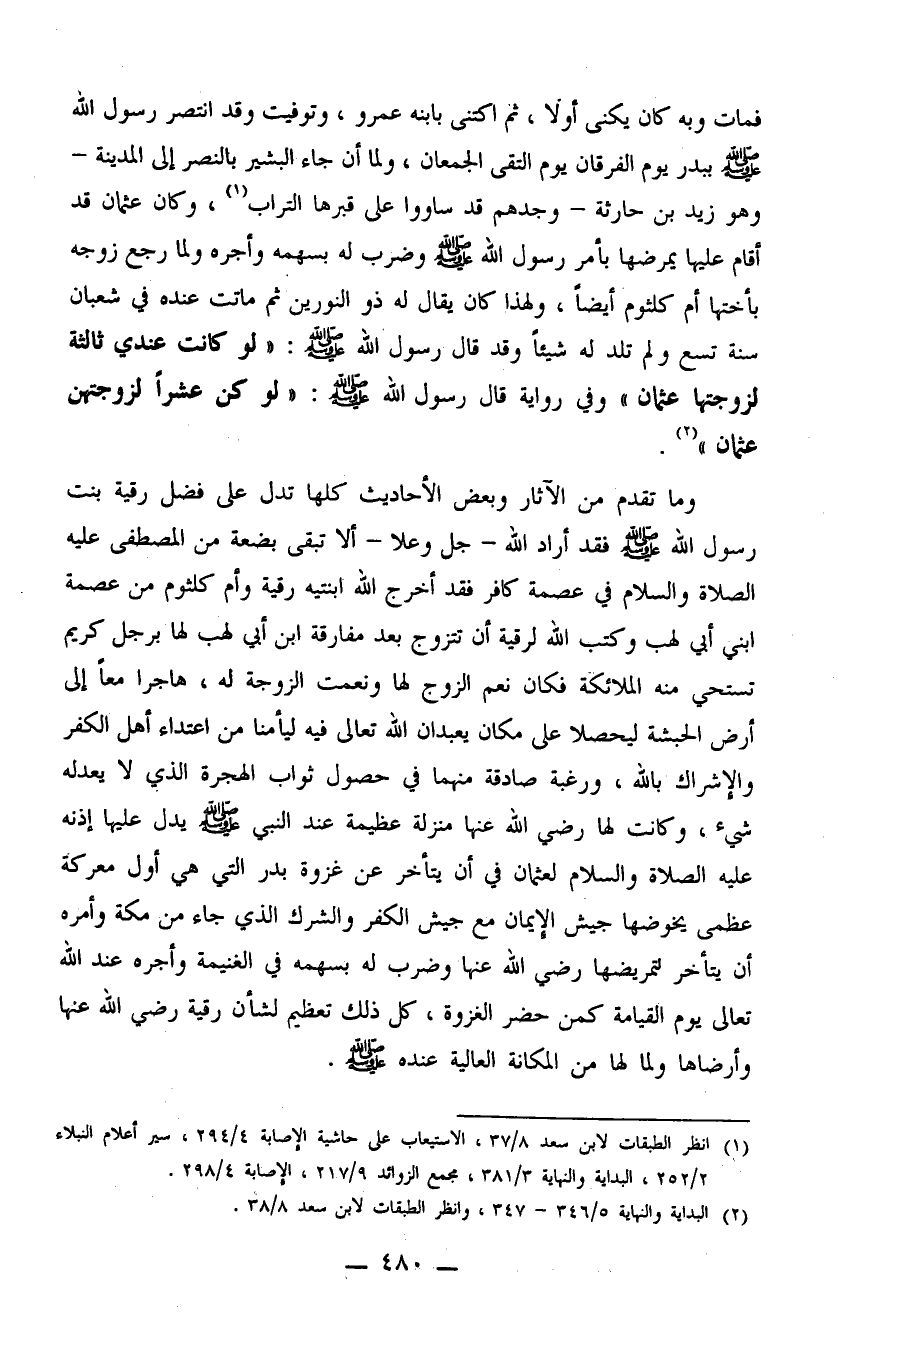 فمات وبه كان يكنى أولًا ، ثم اكتنى بابنه عمرو ، وتوفيت وقد انتصر رسول الله
ﷺ ببدر يوم الفرقان يوم التقى الجمعان ، ولما أن جاء البشير بالنصر إلى المدينة –
وهو زيد بن حارثة – وجدهم قد ساووا على قبرها التراب(١) ، وكان عثمان قد
أقام عليها يمرضها بأمر رسول الله ﷺ وضرب له بسهمه وأجره ولما رجع زوجه
بأختها أم كلثوم أيضاً ، ولهذا كان يقال له ذو النورين ثم ماتت عنده في شعبان
سنة تسع ولم تلد له شيئاً وقد قال رسول الله ﷺ : « لو كانت عندي ثالثة
لزوجتها عثمان » وفي رواية قال رسول الله ﷺ : « لو كن عشراً لزوجتهن
عثمان »(٢) .
وما تقدم من الآثار وبعض الأحاديث كلها تدل على فضل رقية بنت
رسول الله ﷺ فقد أراد الله – جل وعلا – ألا تبقى بضعة من المصطفى عليه
الصلاة والسلام في عصمة كافر فقد أخرج الله ابنتيه رقية وأم كلثوم من عصمة
ابني أبي لهب وكتب الله لرقية أن تتزوج بعد مفارقة ابن أبي لهب لها برجل كريم
تستحي منه الملائكة فكان نعم الزوج لها ونعمت الزوجة له ، هاجرا معاً إلى
أرض الحبشة ليحصلا على مكان يعبدان الله تعالى فيه ليأمنا من اعتداء أهل الكفر
والإشراك بالله ، ورغبة صادقة منهما في حصول ثواب الهجرة الذي لا يعدله
شيء ، وكانت لها رضي الله عنها منزلة عظيمة عند النبي ﷺ يدل عليها إذنه
عليه الصلاة والسلام لعثمان في أن يتأخر عن غزوة بدر التي هي أول معركة
عظمى يخوضها جيش الإيمان مع جيش الكفر والشرك الذي جاء من مكة وأمره
أن يتأخر لتمريضها رضي الله عنها وضرب له بسهمه في الغنيمة وأجره عند الله
تعالى يوم القيامة كمن حضر الغزوة ، كل ذلك تعظيم لشأن رقية رضي الله عنها
وأرضاها ولما لها من المكانة العالية عنده ﷺ .
(١) انظر الطبقات لابن سعد ٣٧/٨ ، الاستيعاب على حاشية الإصابة ٢٩٤/٤ ، سير أعلام النبلاء
٢٥٢/٢ ، البداية والنهاية ٣٨١/٣ ، مجمع الزوائد ٢١٧/٩ ، الإصابة ٢٩٨/٤ .
(٢) البداية والنهاية ٣٤٦/٥ – ٣٤٧ ، وانظر الطبقات لابن سعد ٣٨/٨ .
– ٤٨٠ –